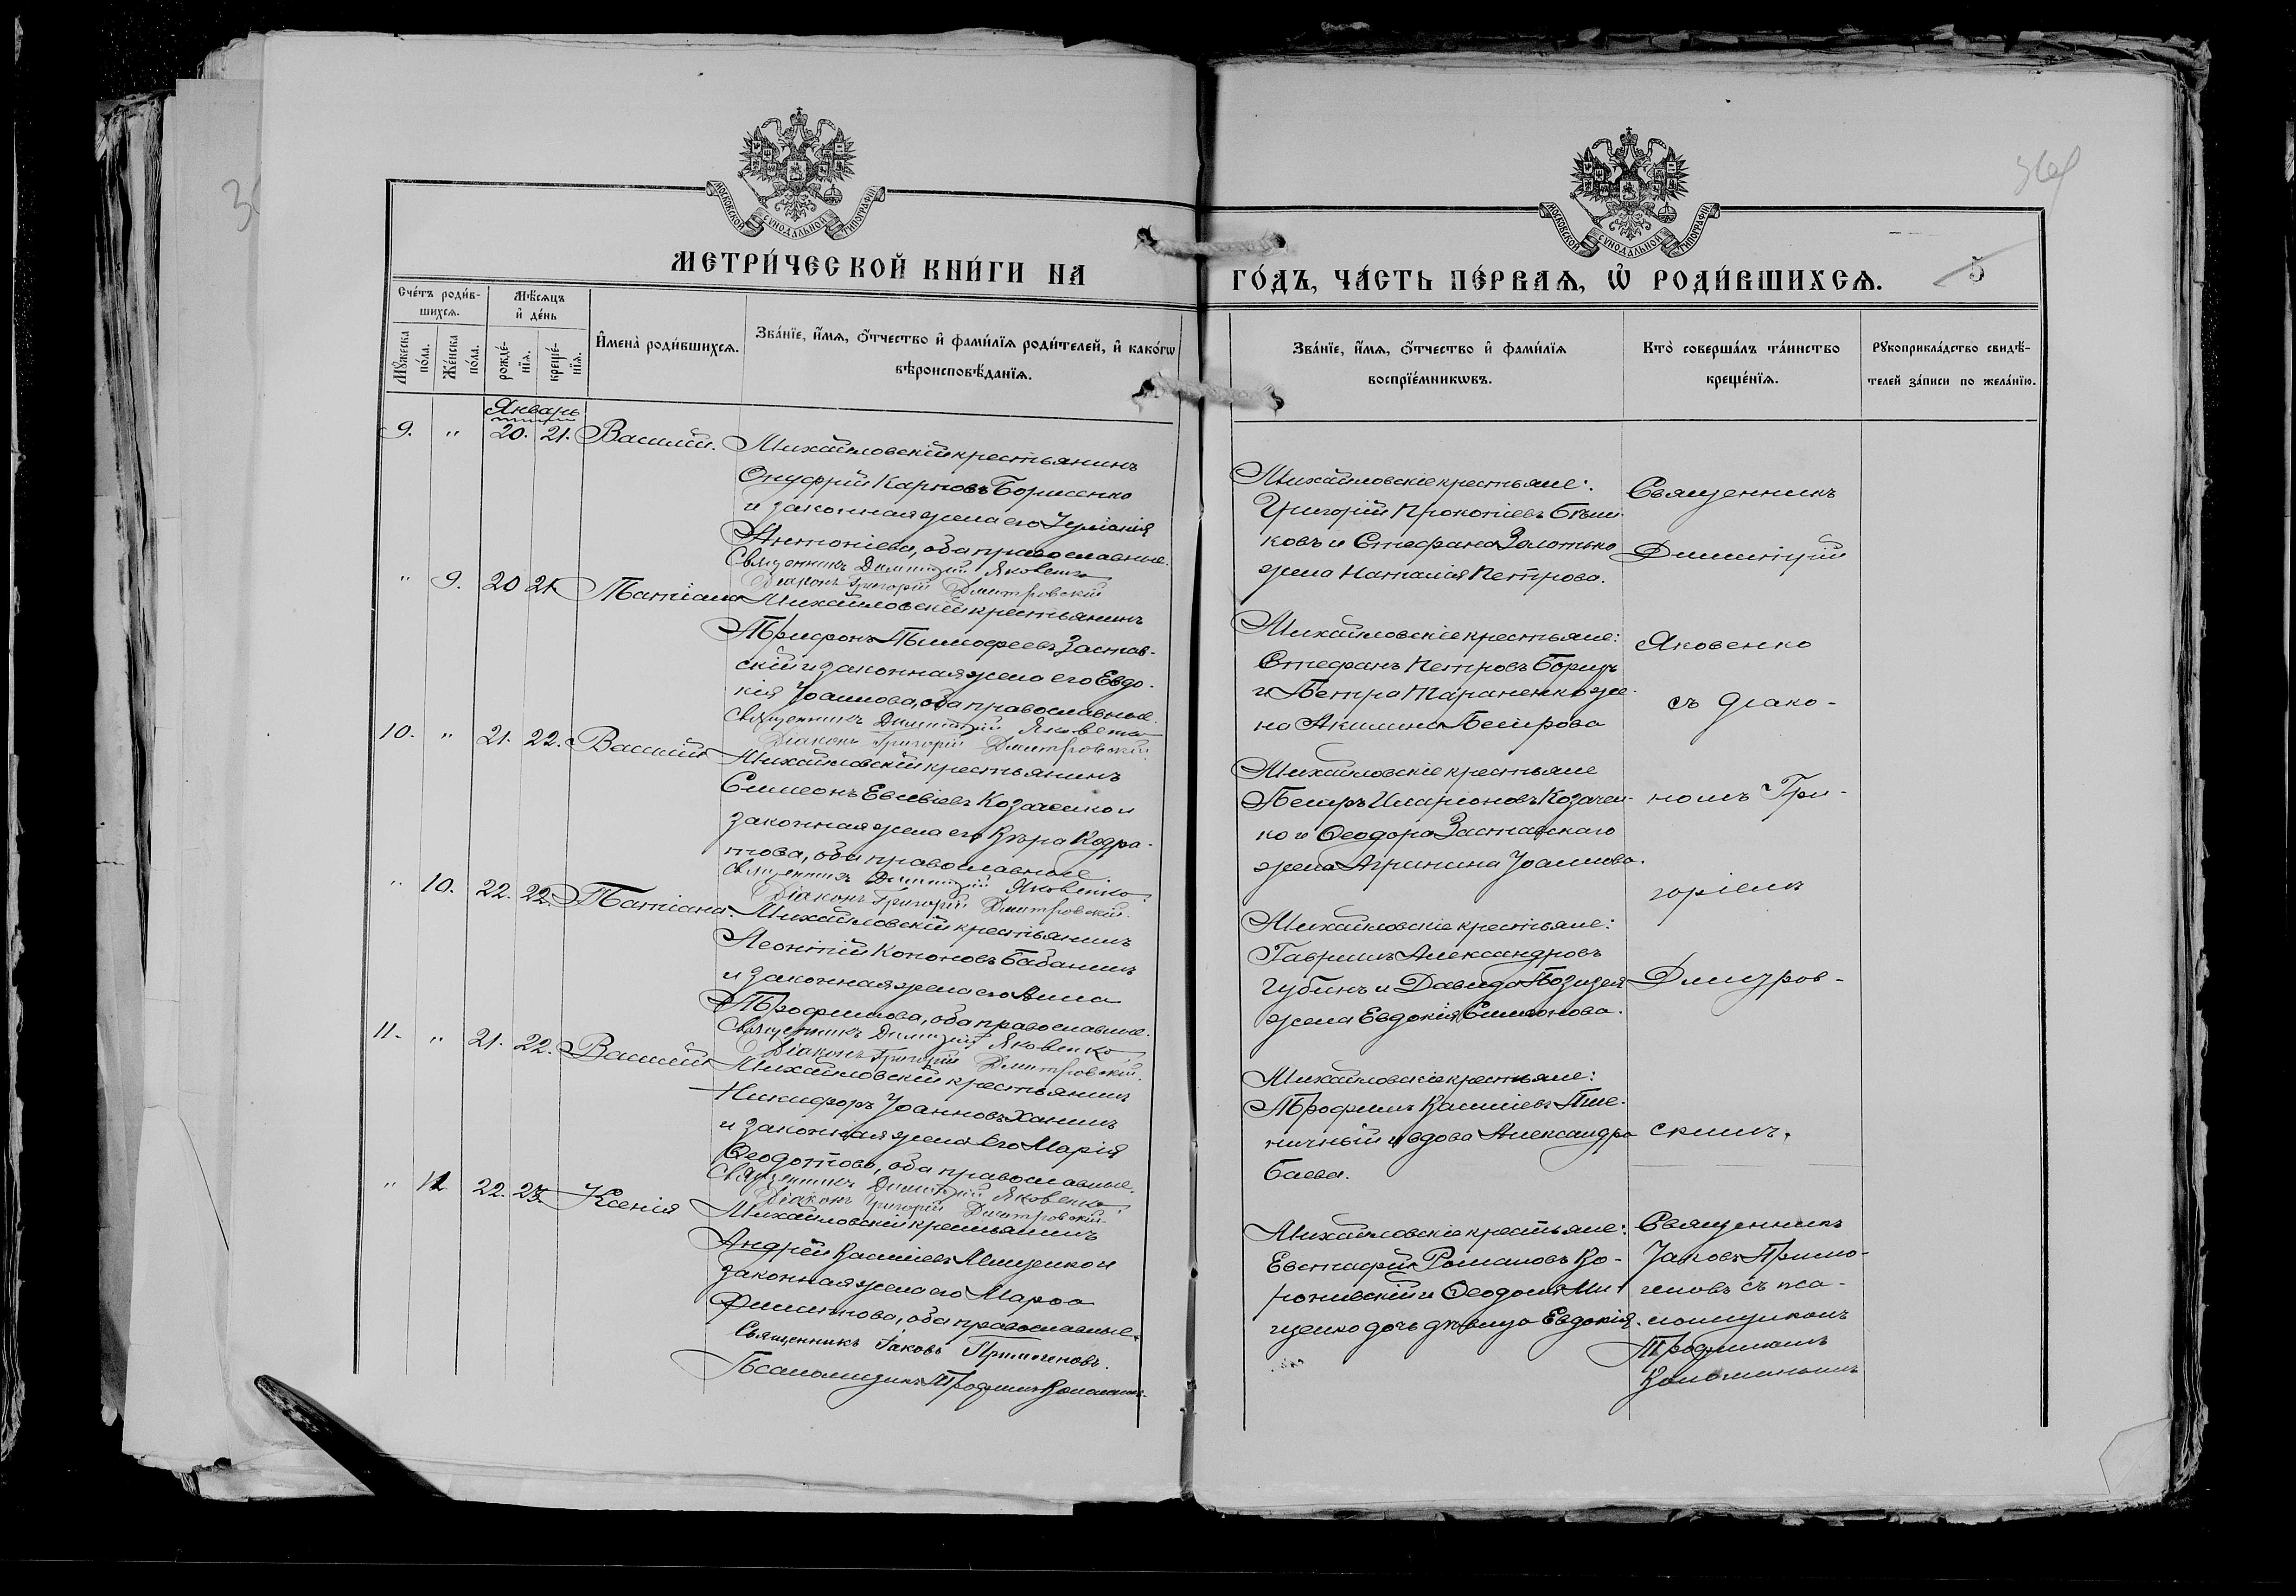 МОСКОВСКОЙ СУНОДАЛЬНОЙ ТИПОГРАФІИ
МЕТРИ́ЧЕСКОЙ КНИ́ГИ НА
Сче́тъ роди́в-
шихсѧ.
Мѣ́сѧцъ
и҆ де́нь
Мꙋ́жеска
по́ла.
Же́нска
по́ла.
рожде́-
нїѧ.
креще́-
нїѧ.
И҆мена̀ роди́вшихсѧ.
Зва́нїе, и҆́мѧ, ѻ҆́тчество и҆ фами́лїѧ роди́телей, и҆ како́гѡ
вѣроисповѣ́данїѧ.
Январь
9. " 20. 21. Василій. Михайловскій крестьянинъ
Онуфрій Карповъ Борисенко
и законная жена его Іуліанія
Антоніева, оба православные.
Священникъ Димитрій Яковенко
Діаконъ Григорій Дмитровскій
" 9. 20 21. Татіана Михайловскій крестьянинъ
Трифонъ Тимофеевъ Застав-
скій и законная жена его Евдо-
кія Іоаннова, оба православные.
Священникъ Димитрій Яковенко
Діаконъ Григорій Дмитровскій.
10. " 21. 22. Василій Михайловскій крестьянинъ
Симеонъ Евсевіевъ Козаченко и
законная жена его Вѣра Кодра-
това, оба православные.
Священникъ Димитрій Яковенко
Діаконъ Григорій Дмитровскій.
" 10. 22. 22. Татіана. Михайловскій крестьянинъ
Леонтій Кононовъ Бабанинъ
и законная жена его Анна
Трофимова, оба православные.
Священникъ Димитрій Яковенко
Діаконъ Григорій Дмитровскій.
11. " 21. 22. Василій Михайловскій крестьянинъ
Никифоръ Іоанновъ Ханинъ
и законная жена его Марія
Ѳеодотова, оба православные.
Священникъ Димитрій Яковенко
Діаконъ Григорій Дмитровскій.
" 11. 22. 23. Ксенія Михайловскій крестьянинъ
Андрей Василіевъ Мищенко и
законная жена его Марѳа
Филиппова, оба православные.
Священникъ Іаковъ Примогеновъ.
Псаломщикъ Трофимъ
МОСКОВСКОЙ СУНОДАЛЬНОЙ ТИПОГРАФІИ
ГО́ДЪ, ЧА́СТЬ ПЕ́РВАѦ, Ѡ҆ РОДИ́ВШИХСѦ.
5
Зва́нїе, и҆́мѧ, ѻ҆́тчество и҆ фами́лїѧ
воспрїе́мникѡвъ.
Кто̀ соверша́лъ та́инство
креще́нїѧ.
Рꙋкоприкла́дство свидѣ́-
телей за́писи по жела́нїю.
Михайловскіе крестьяне:
Григорій Прокопіевъ
ковъ и Стефана Золотько
жена Наталія Петрова.
Михайловскіе крестьяне:
Стефанъ Петровъ
и Петра Тараненко же-
на Акилина Петрова
Михайловскіе крестьяне
Петръ Иларіоновъ Козачен-
ко и Ѳеодора Заставскаго
жена Агрипина Іоаннова.
Михайловскіе крестьяне:
Гавриилъ Александровъ
Губинъ и Давида
жена Евдокія Симонова.
Михайловскіе крестьяне:
Трофимъ Василіевъ Пше-
ничный и вдова Александра
Баева.
Михайловскіе крестьяне:
Евстафій Романовъ Во-
и Ѳеодота Ми-
щенко дочь дѣвица Евдокія.
Священникъ
Димитрій
Яковенко
съ діако-
номъ Гри-
горіемъ
Дмитров-
скимъ.
Священникъ
Іаковъ Примо-
геновъ съ пса-
ломщикомъ
Трофимомъ